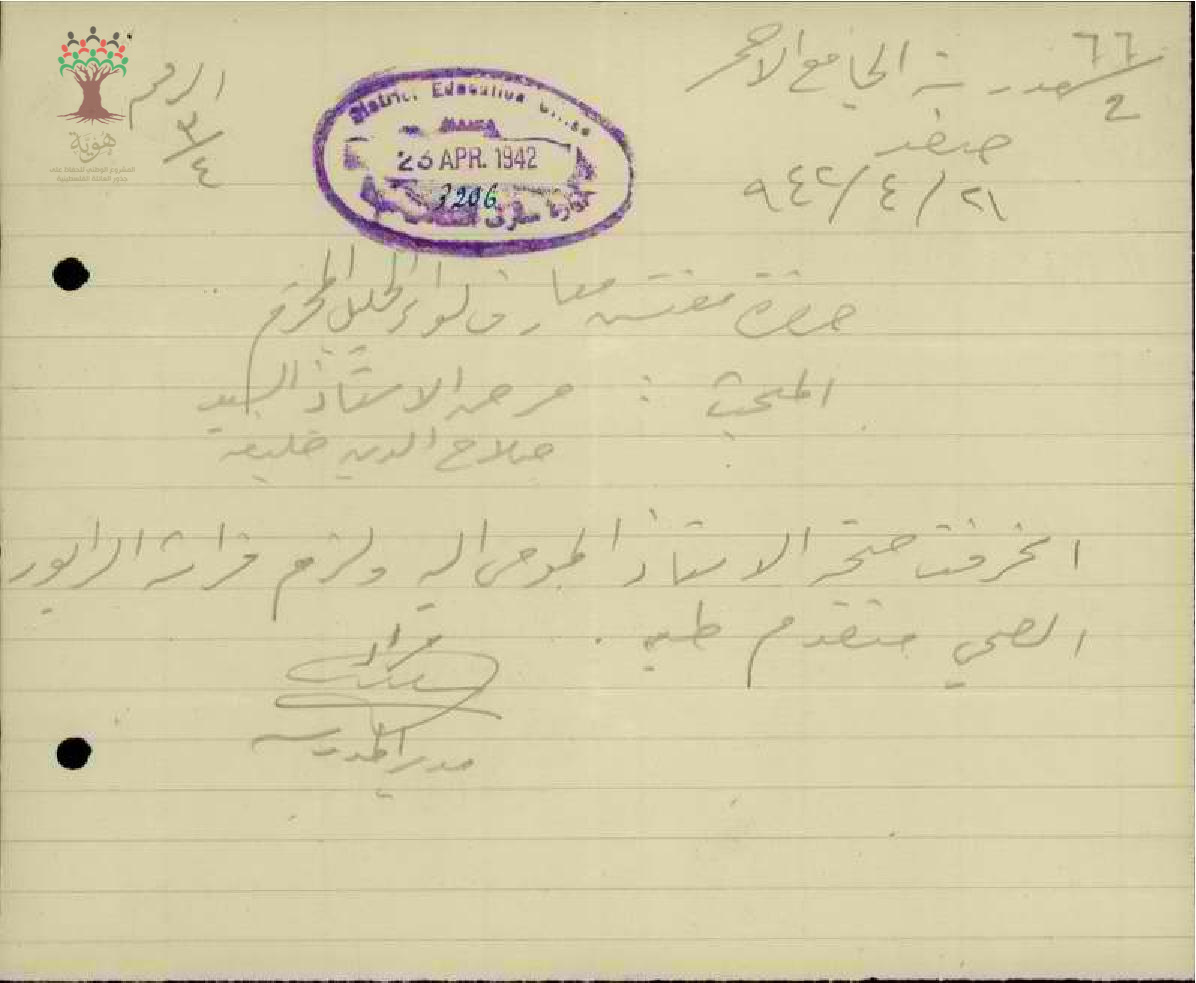 ٦٦/2
مدرسة الجامع الاحمر
صفد
٢١/٤/٩٤٢
الرقم
٣/٤
هُوِيَّة
المشروع الوطني للحفاظ على
جذور العائلة الفلسطينية
District Education Office
HAIFA
23 APR. 1942
3206
حضرة مفتش معارف لواء الجليل المحترم
المبحث : مرض الاستاذ السيد
صلاح الدين خليفة
انحرفت صحة الاستاذ المومى اليه ولزم فراشه الرابور
الصحي متقدم طيه .
مدير المدرسة